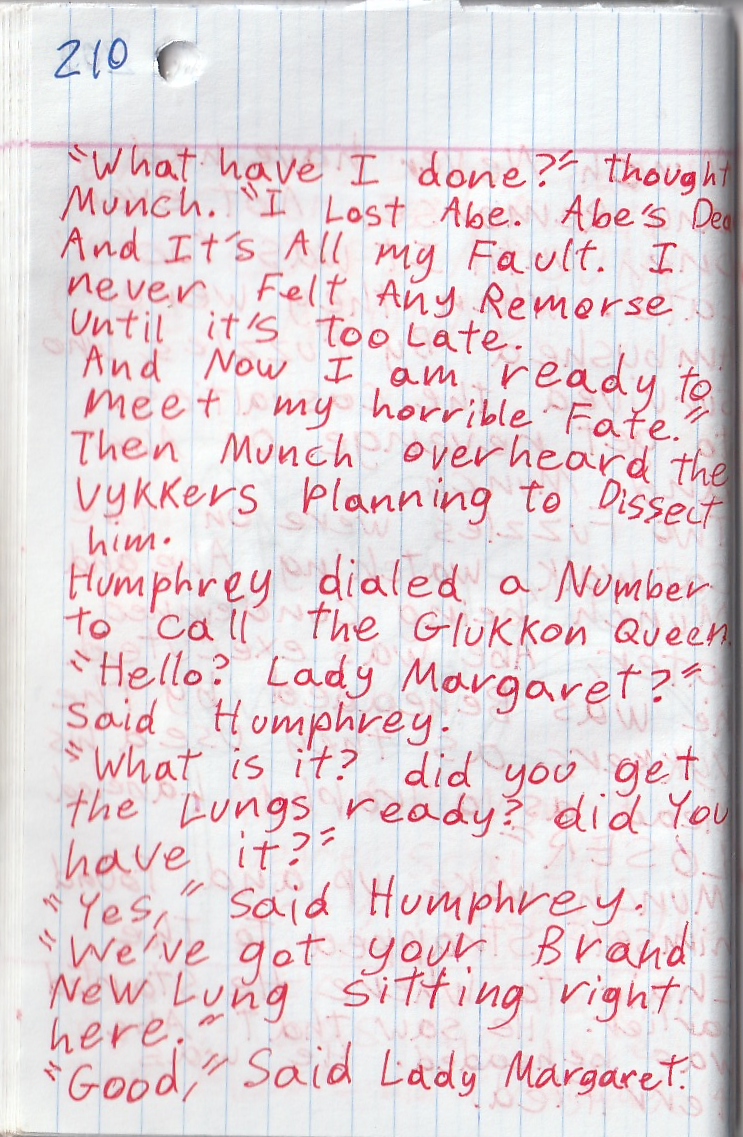 210
"What have I done?" thought
Munch. "I Lost Abe. Abe's Dea
And It's All my Fault. I
never Felt Any Remorse
Until it's too Late.
And Now I am ready to
meet my horrible Fate."
Then Munch overheard the
Vykkers planning to Dissect
him.
Humphrey dialed a Number
to call the Glukkon Queen.
"Hello? Lady Margaret?"
Said Humphrey.
"What is it? did you get
the Lungs ready? did You
have it?"
"Yes," Said Humphrey.
"We've got your Brand
New Lung sitting right
here."
"Good," Said Lady Margaret.